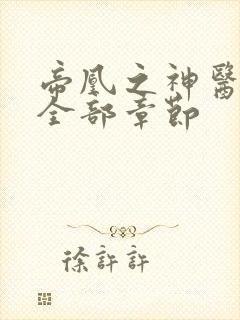 帝凰之神醫
全部章節
徐許許